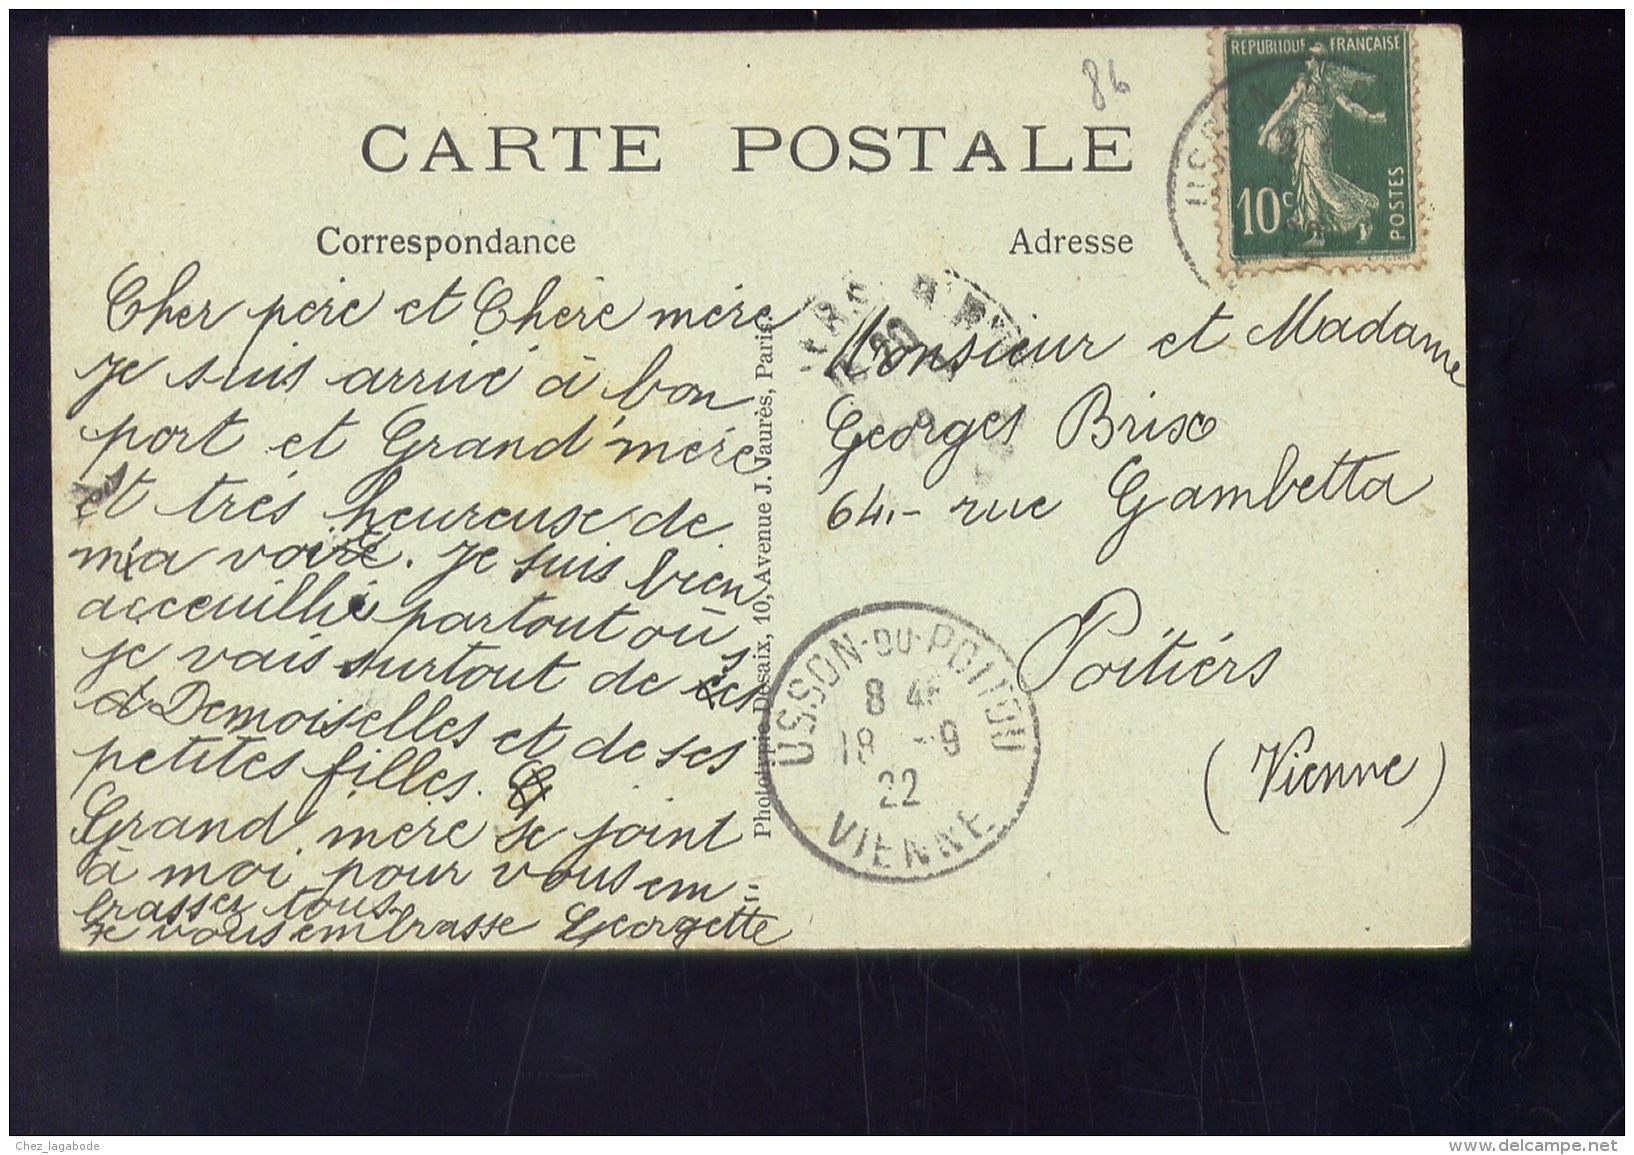 86
CARTE POSTALE
REPUBLIQUE FRANÇAISE
10c
POSTES
Correspondance
Adresse
Cher père et Chère mère
Je suis arrivé à bon
port et Grand'mère
et très heureuse de
ma voire. Je suis bien
acceuillie partout où
je vais surtout de ses
Demoiselles et de ses
petites filles.
Grand'mère se joint
à moi pour vous em
brasser tous
Je vous embrasse Georgette
Phototypie Desaix, 10, Avenue J. Jaurès, Paris.
Monsieur et Madame
Georges
64,- rue Gambetta
Poitiérs
(Vienne)
USSON-DU-POITOU
18 -9
22
VIENNE
Chez_lagabode
www.delcampe.net